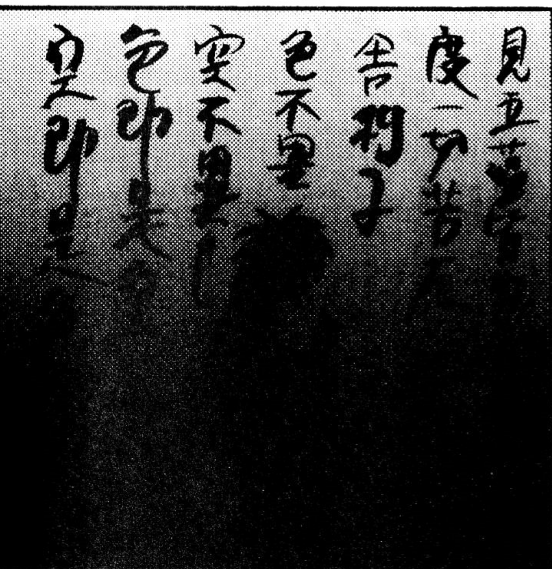 見五蘊皆空
度一切苦厄
舎利子
色不異
空不異
色即是空
空即是